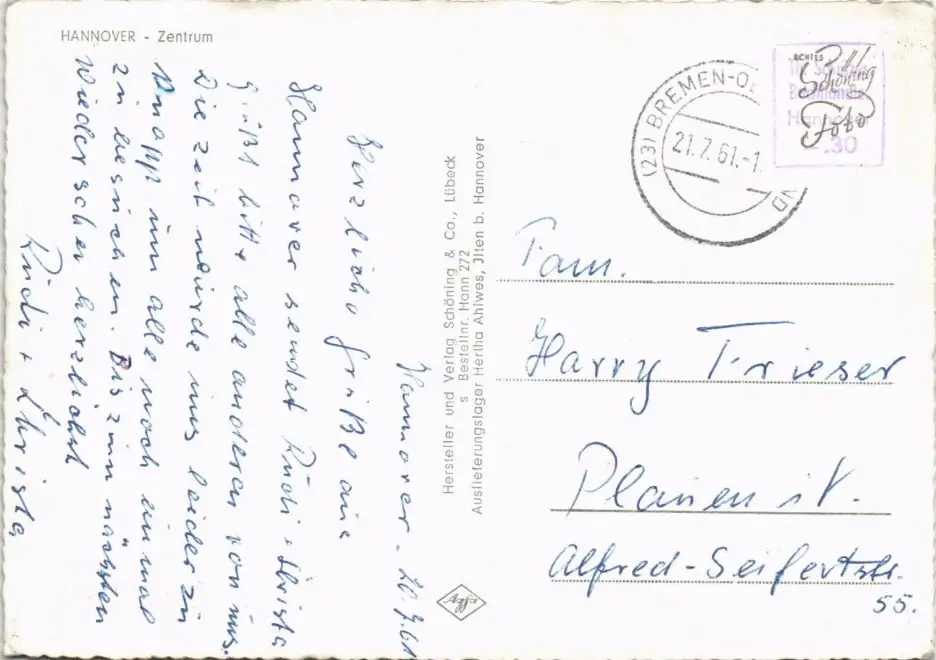 HANNOVER - Zentrum
Hannover - 20.7.61
Herzliche Grüße aus
Hannover sendet Rudi + Christa
Grüßt bitte alle anderen von uns.
Die Zeit würde uns leider zu
knapp um alle noch einmal
zu besuchen. Bis zum nächsten
Wiedersehen herzlichst
Rudi + Christa
Hersteller und Verlag Schöning & Co., Lübeck
s Bestellnr. Hann 272
Auslieferungslager Hertha Ahlwes, Jlten b. Hannover
Agfa
(23) BREMEN-O
21.7.61.-1
ECHTES
Schöning
Foto
Hannover
-.30
Fam.
Harry Frieser
Plauen i.V.
Alfred-Seifertstr.
55.